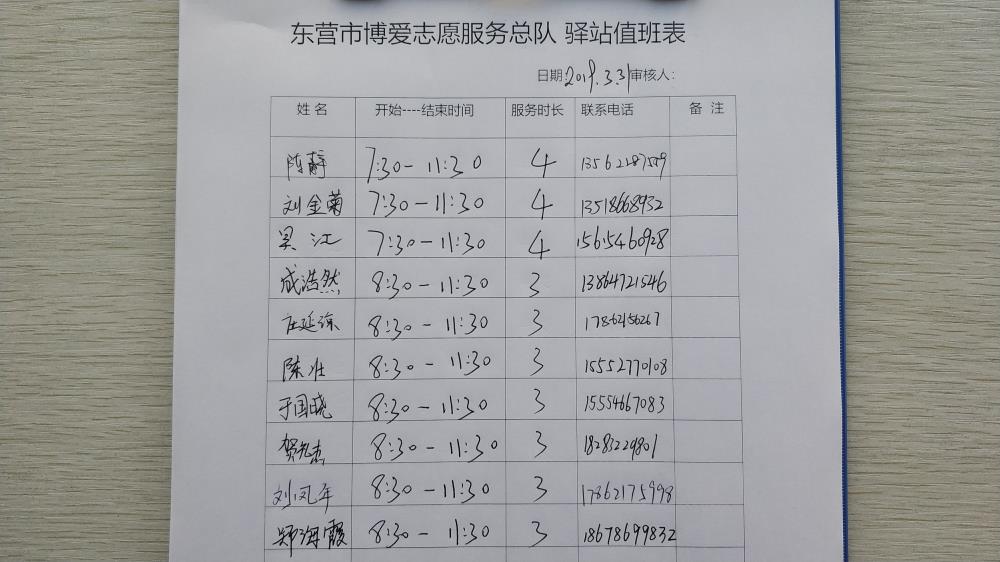 东营市博爱志愿服务总队 驿站值班表
日期:2019.3.31 审核人:
姓名 开始----结束时间 服务时长 联系电话 备 注
陈静 7:30-11:30 4
刘金菊 7:30-11:30 4 13518668932
吴江 7:30-11:30 4 15615460928
成浩然 8:30-11:30 3 13864721546
庄延 8:30-11:30 3 17862156267
陈壮 8:30-11:30 3 15552770108
于国晓 8:30-11:30 3 15554667083
贺 杰 8:30-11:30 3
刘凤年 8:30-11:30 3 17862175998
郑海霞 8:30-11:30 3 18678699832